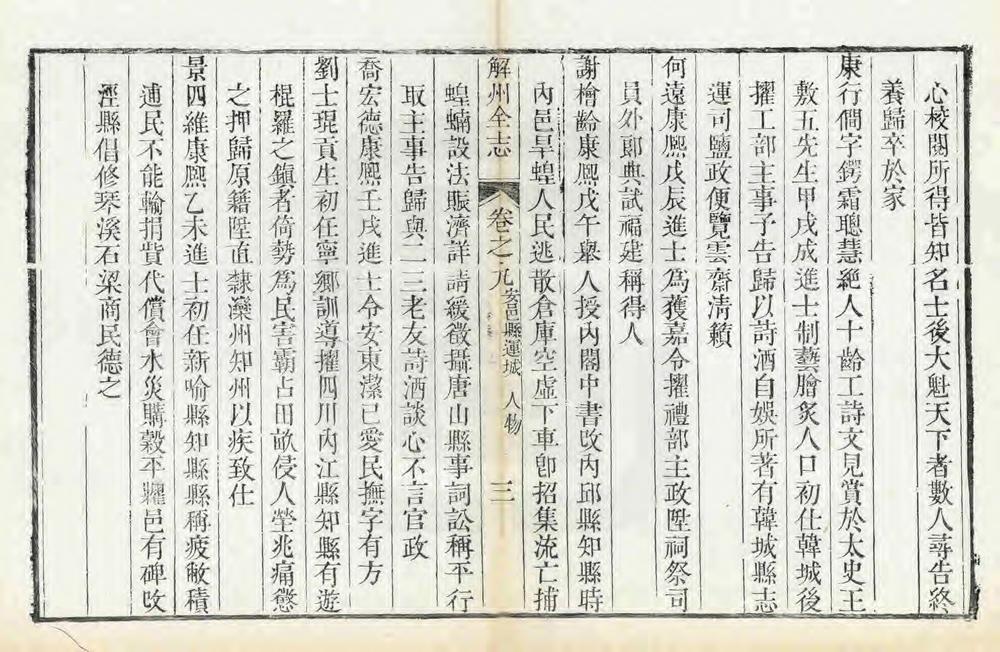 心校閱所得皆知名士後大魁天下者數人尋告終
養歸卒於家
康行僴字鍔霜聰慧絶人十齡工詩文見賞於太史王
敷五先生甲戌成進士制藝膾炙人口初仕韓城後
擢工部主事予告歸以詩酒自娛所著有韓城縣志
運司鹽政便覽雲齋清籟
何遠康熙戊辰進士為獲嘉令擢禮部主政陞祠祭司
員外郎典試福建稱得人
謝檜齡康熙戊午舉人授內閣中書改內邱縣知縣時
內邑旱蝗人民逃散倉庫空虛下車卽招集流亡捕
解州全志 卷之九 安邑縣運城 人物 三
蝗蝻設法賑濟詳請緩徵攝唐山縣事詞訟稱平行
取主事告歸與二三老友詩酒談心不言官政
喬宏德康熙壬戌進士令安東潔已愛民撫字有方
劉士琨貢生初任寧鄉訓導擢四川內江縣知縣有遊
棍羅之鎮者倚勢為民害霸占田畝侵人塋兆痛懲
之押歸原籍陞直隸灤州知州以疾致仕
景四維康熙乙未進士初任新喻縣知縣縣稱疲敝積
逋民不能輸捐貲代償會水災購穀平糶邑有碑改
涇縣倡修琴溪石梁商民德之